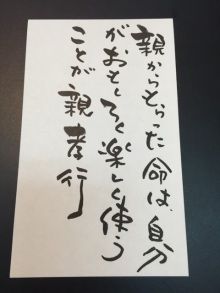 親からもらった命は、自分
がおもしろく楽しく使う
ことが親孝行